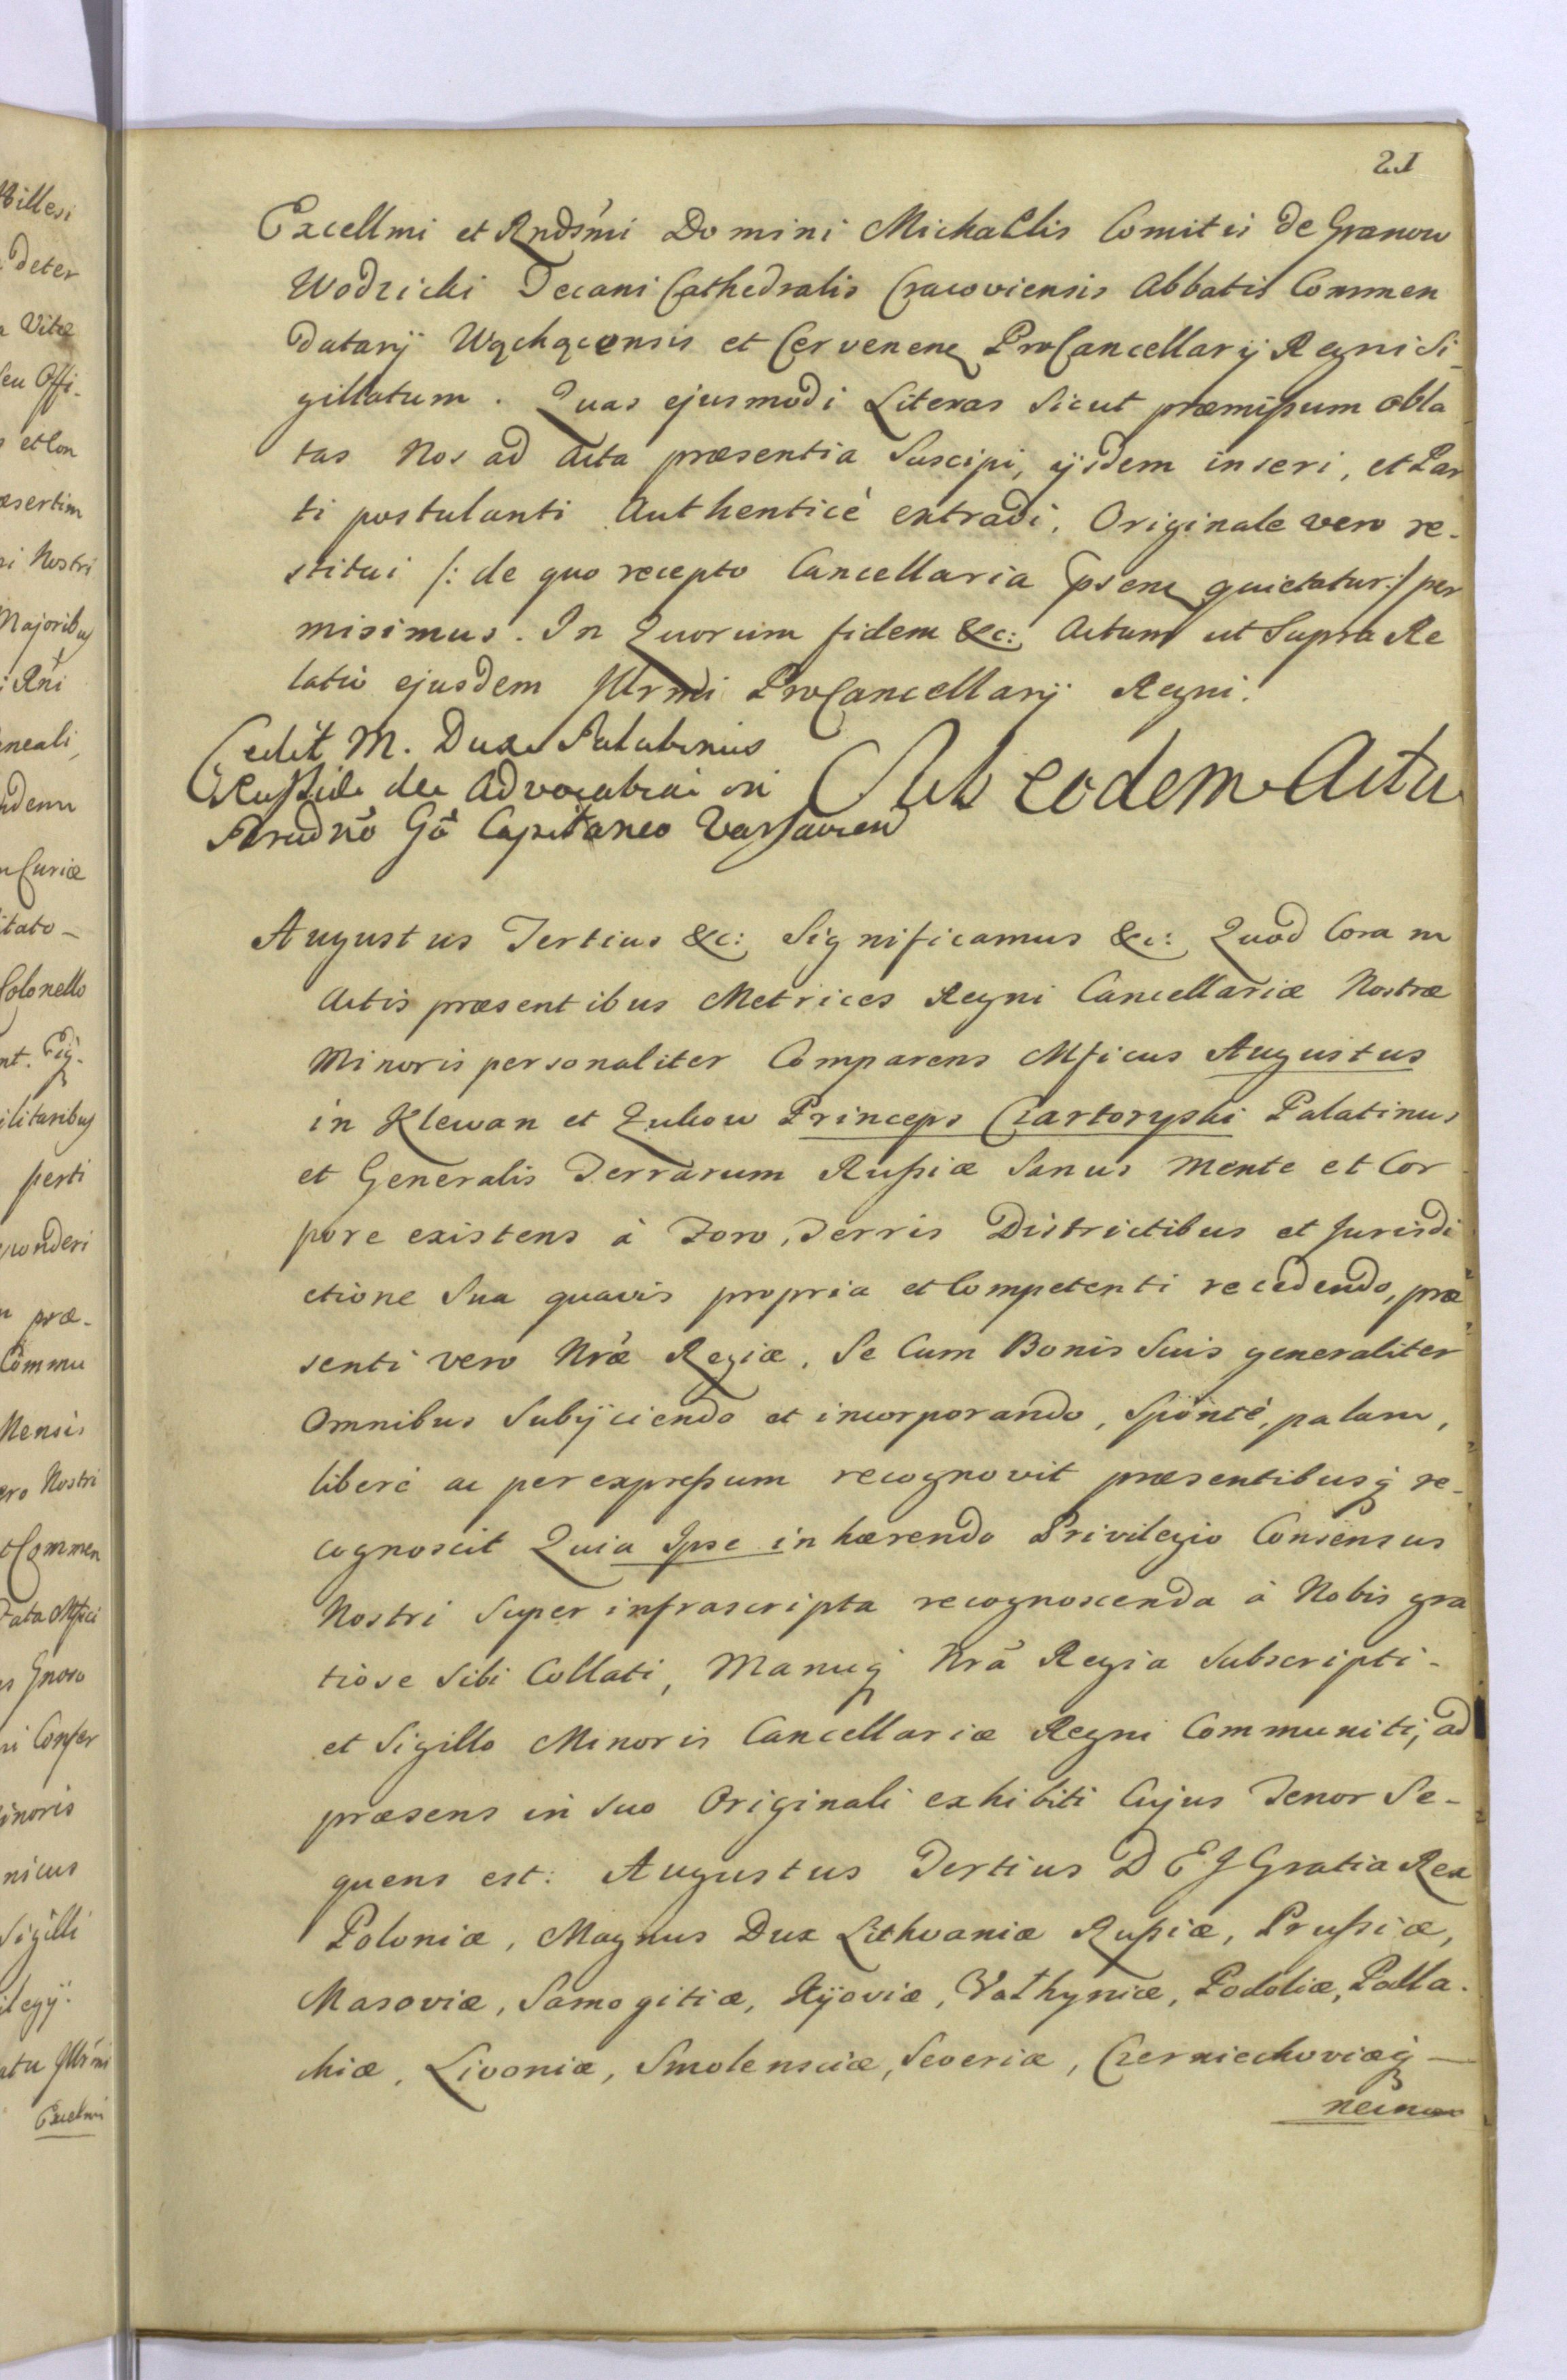 21
Excellmi et Rndsmi Domini Michaelis Comitis de Granow
Wodzicki Decani Cathedralis Cracoviensis Abbatis Commen
datarij Wąchocensis et Cervenenq ProCancellarij Regni Si_
gillatum. Quas ejusmodi Literas sicut præmissum obla
tas Nos ad Acta præsentia suscipi, ijsdem inseri, et Par
ti postulanti Authenticè extradi, Originale vero re_
stitui /: de quo recepto Cancellaria psens quietatur :/ per
misimus. In Quorum fidem &c: Actum ut Supra Re
latio ejusdem Illrmi ProCancellarij Regni.
Cedit M. Dux Palatinus
Russiæ de Advocatiai in
Capitaneo Varsavien
Sub eodem Actu
Augustus Tertius &c: Significamus &c: Quod Coram
Actis præsentibus Metrices Regni Cancellariæ Nostræ
Minoris personaliter Comparens Mficus Augustus
in Klewan et Zukow Princeps Czartoryski Palatinus
et Generalis Terrarum Russiæ Sanus Mente et Cor
pore existens à Foro, Terris Districtibus et Jurisdi
ctione Sua quavis propria et Competenti recedendo, præ
senti vero Nræ Regiæ, Se Cum Bonis Suis generaliter
Omnibus Subijciendo et incorporando, Spontè, palam,
liberè ac per expressum recognovit præsentibusq re_
cognoscit Quia Ipse inhærendo Privilegio Consensus
Nostri Super infrascripta recognoscenda à Nobis gra
tiose Sibi Collati, Manuq Nrã Regia Subscripti_
et Sigillo Minoris Cancellariæ Regni Communiti, ad
præsens in Suo Originali exhibiti Cujus Tenor Se_
quens est: Augustus Tertius DEI Gratia Rex
Poloniæ, Magnus Dux Lithvaniæ Russiæ, Prussiæ,
Masoviæ, Samogitiæ, Kijoviæ, Vołhyniæ, Podoliæ, Podla_
chiæ, Livoniæ, Smolensciæ, Severiæ, Czerniechoviæq_
necnon